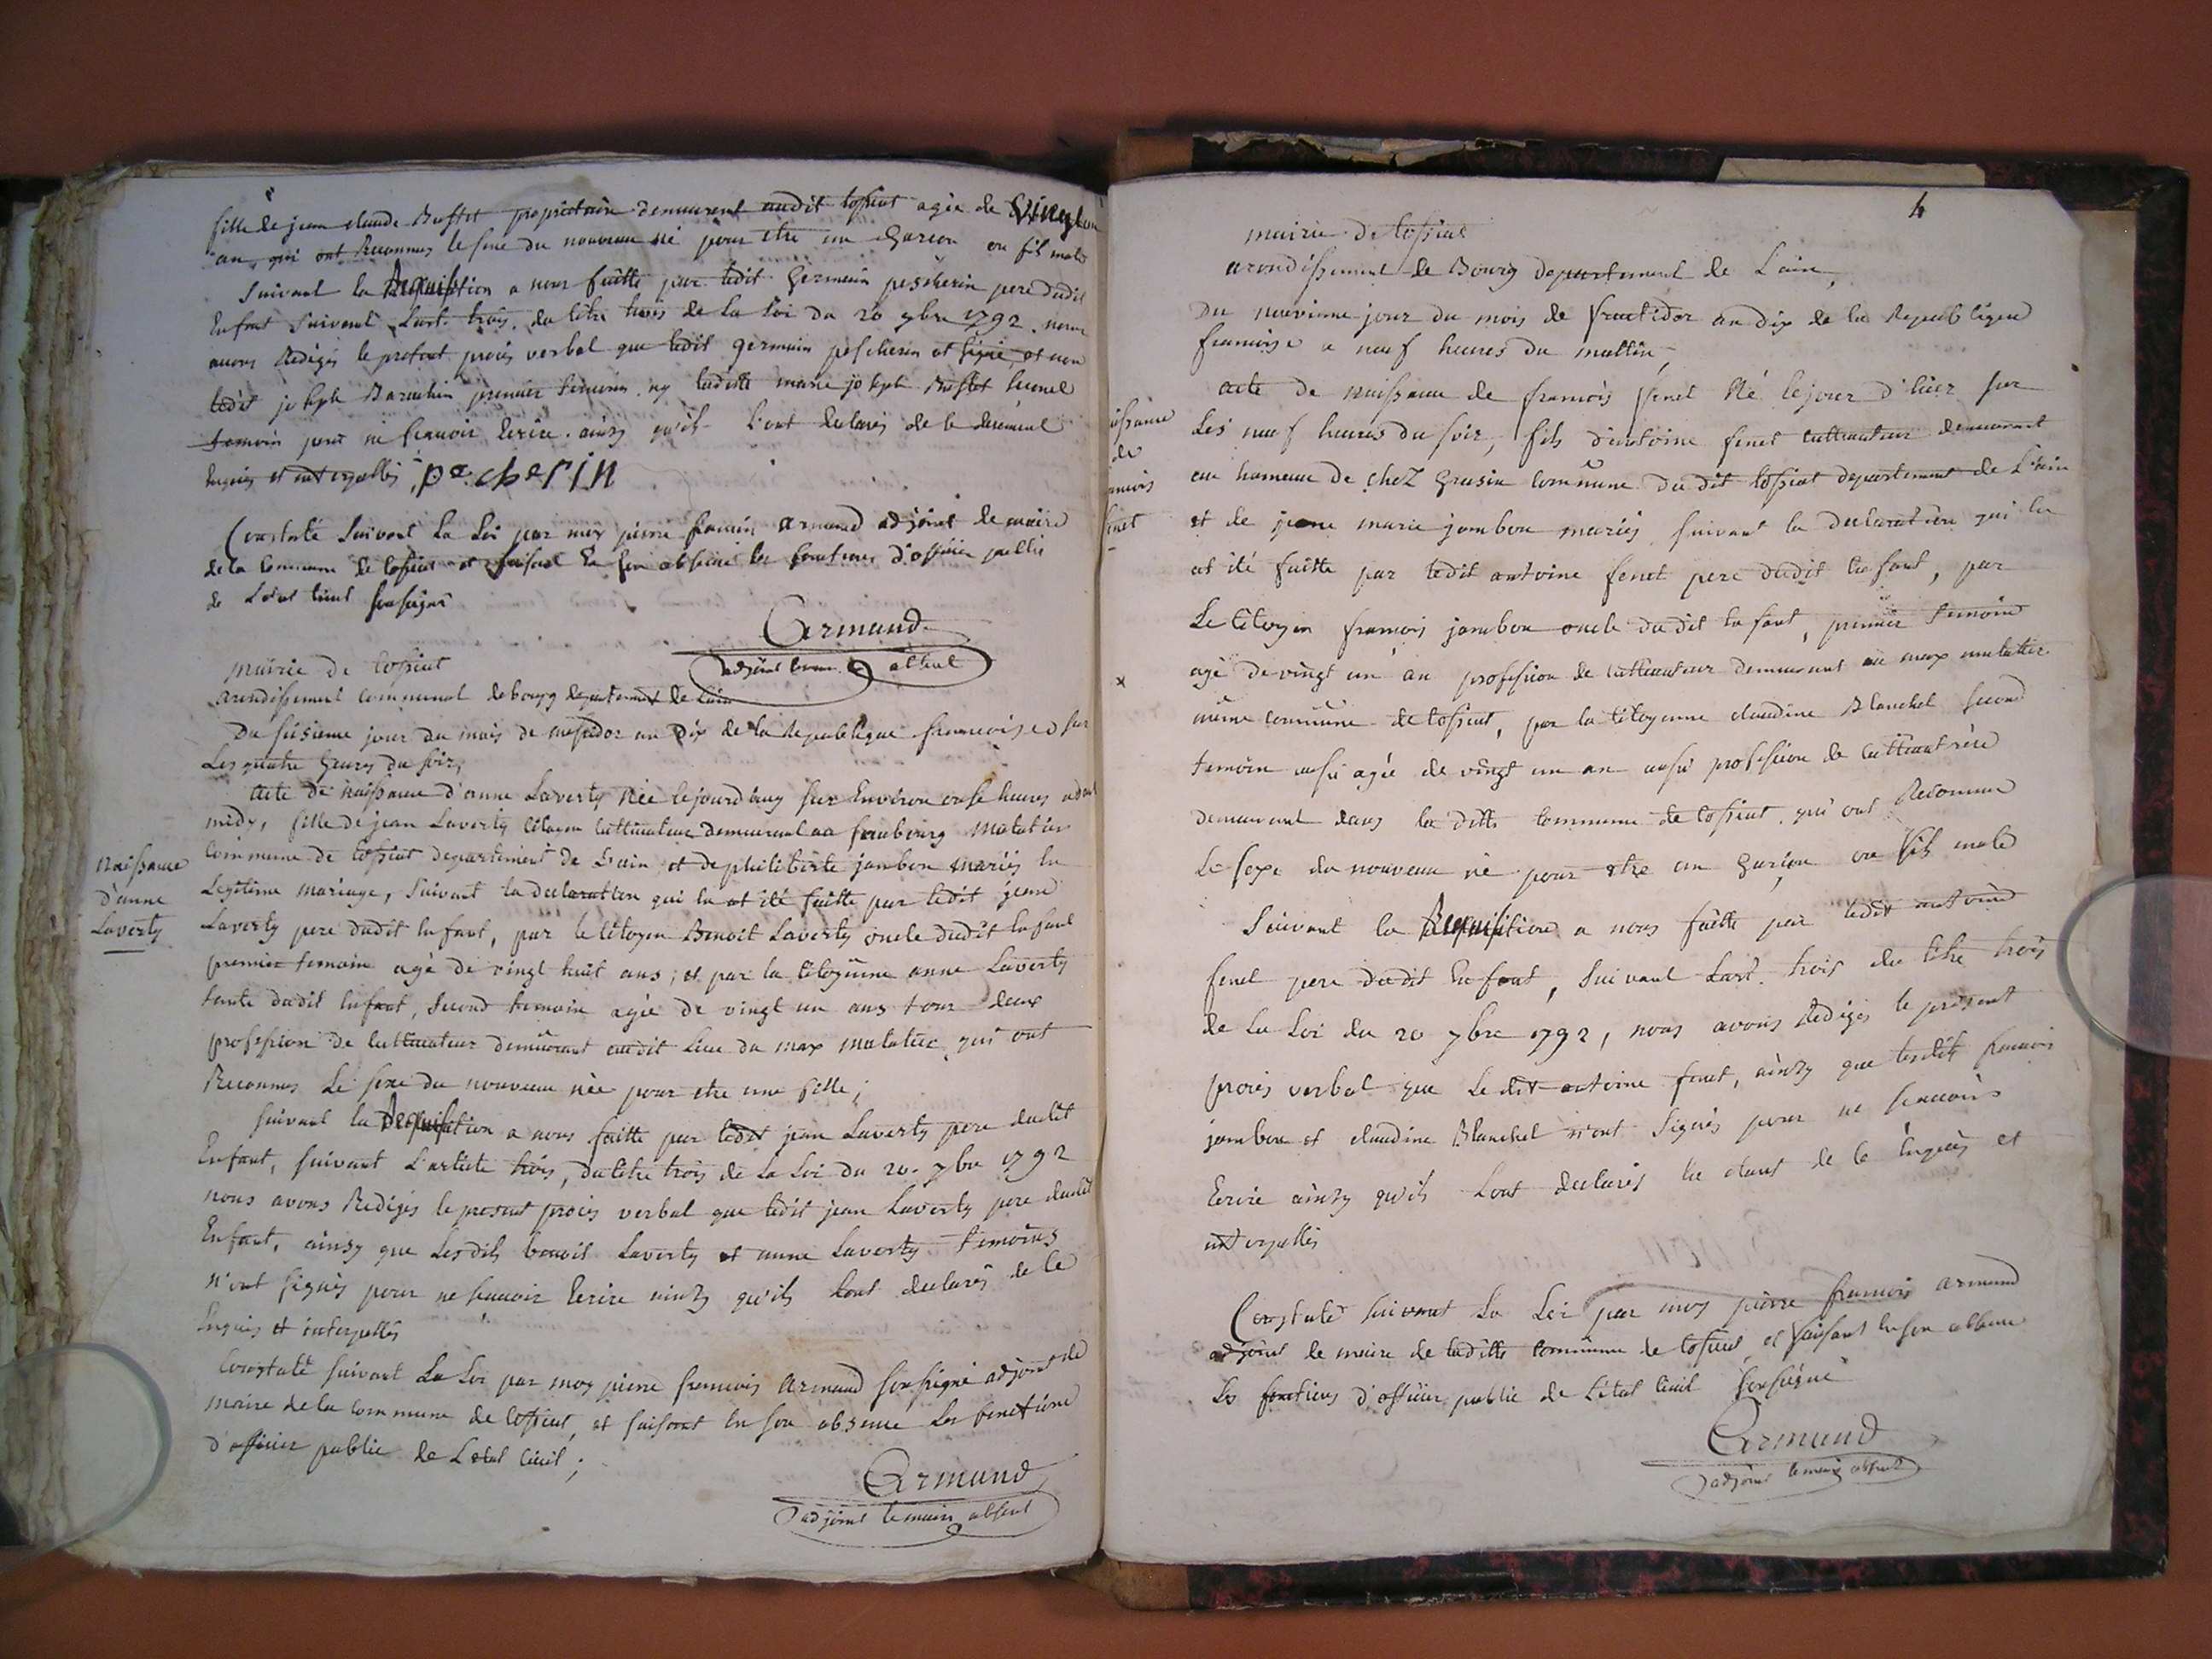 fille de jean claude Buffet propriétaire demeurent audit tossiat agée de vingt un
an, qui ont Reconnus le sexe du nouveau né pour etre un Garcon ou fils male
Suivant la Requisition a nous faitte par ledit Germain pescherin pere dudit
Enfant Suivant L'art. trois du titre trois de la Loi du 20 7bre 1792. nous
avons Rédigés le présent procès verbal que ledit germain pescherin at signé, et non
ledit joseph premier temoin ny laditte marie joseph Buffet second
temoin pour ne scauoir Ecrire. ainsy qu'ils L'ont declarés de ce
Enquis et interpellés, pecherin
Constaté Suivant La Loi par moy pierre francois Armand adjoint de maire
de la Commune de tossiat et faisant En son absence les fonctions d'officier public
de L'état Civil soussigné
Armand
adjoint le maire absent
mairie de tossiat
arondissement communal de bourg departement de L'ain
Du sisieme jour du mois de messidor an Dix de la Republique francoise sur
Les quatre heures du soir,
Acte de naissance d'anne Laverty Née le jourd'huy sur Environ onse heures avant
midy, fille de jean Laverty Citoyen Cultivateur demeurant au faubourg Malatier
Commune de tossiat departement de L'ain et de philiberte jambon mariés En
Legitime mariage, Suivant la declaration qui en at été faitte par ledit jean
Laverty pere dudit Enfant, par le Citoyen Benoit Laverty oncle dudit Enfant
premier temoin agé de vingt huit ans; et par la Citoyenne anne Laverty
tante dudit Enfant, second temoin agée de vingt un ans tous deux
profession de Cultivateur demeurant audit Lieu du max malatier qui ont
Reconnus Le sexe du nouveau née pour etre une fille;
suivant la Requisition a nous faitte par ledit jean Laverty pere dudit
Enfant, suivant L'article trois, du titre trois de La Loi du 20. 7bre 1792
nous avons Redigés le present procés verbal que ledit jean Laverty pere dudit
Enfant, ainsy que Lesdits benoit Laverty et anne Laverty temoins
n'ont signés pour ne scauoir Ecrire ainsy qu'ils L'ont declarés de ce
Enquis et interpellés
Constaté suivant La Loi par moy pierre francois Armand soussigné adjoint de
maire de la commune de tossiat, et faisant En son absence Les fonctions
d'officier public de L'etat Civil;
Armand
adjoint le maire absent
Naissance
d'anne
Laverty
4
mairie de tossiat
arondissement de Bourg departement de L'ain,
Du neuvieme jour du mois de fructidor an dix de la Republique
francoise a neuf heures du mattin,
acte de naissance de francois fenet Né le jour d'hier sur
Les neuf heures du soir, fils d'antoine fenet cultivateur demeurant
au hameau de chez Grusin commune du dit tossiat departement de L'ain
et de jeane marie jambon mariés suivant la declaration qui en
at été faitte par ledit antoine fenet pere dudit Enfant, par
Le Citoyen francois jambon oncle du dit Enfant, premier temoin
agé de vingt un an profession de cultivateur demeurant au max malatier
même commune de tossiat, par la Citoyenne claudine Blanchet second
temoin aussi agée de vingt un an aussi profession de cultivatrice
demeurant dans la ditte commune de tossiat. qui ont Reconnus
Le sexe du nouveau né pour etre un Garçon ou fils male
Suivant la Requisition a nous faitte par ledit antoine
fenet pere dudit Enfant, Suivant L'art. trois du titre trois
de la Loi du 20 7bre 1792, nous avons Redigés le présent
procès verbal que Le dit antoine fenet, ainsy que lesdits francois
jambon et claudine Blanchet n'ont Signés pour ne scauoir
Ecrire ainsy qu'ils L'ont declarés En etant de ce Enquis et
interpellés
Constaté suivant La Loi par moy pierre francois armand
adjoint de maire de laditte Commune de tossiat, et faisant En son absence
Les fonctions d'officier public de L'état Civil soussigné
Armand
adjoint le maire absent
issance
de
ancois
fenet